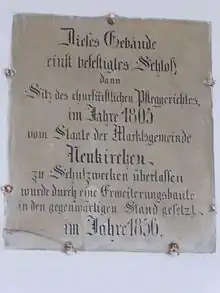 Dieses Gebäude
einst befestigtes Schloß
dann
Sitz des churfürstlichen Pfleggerichtes,
im Jahre 1805
vom Staate der Marktsgemeinde
Neukirchen
zu Schulzwecken überlassen
wurde durch eine Erweiterungsbaute
in den gegenwärtigen Stand gesetzt
im Jahre 1856.